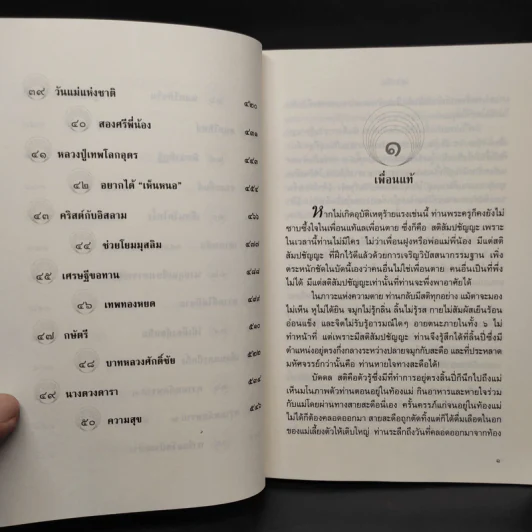 ๓๙ วันแม่แห่งชาติ ๔๒๐
๔๐ สองศรีพี่น้อง ๔๓๑
๔๑ หลวงปู่เทพโลกอุดร ๔๔๑
๔๒ อยากได้ "เห็นหนอ" ๔๕๔
๔๓ คริสต์กับอิสลาม
๔๔ ช่วยโยมมุสลิม
๔๕ เศรษฐีขอทาน
๔๖ เทพทองหยด
๔๗ กษัตรี
๔๘ บาทหลวงศักดิ์ชัย
๔๙ นางดวงดารา
๕๐ ความสุข
๑
เพื่อนแท้
หากไม่เกิดอุบัติเหตุร้ายแรงเช่นนี้ ท่านพระครูก็คงยังไม่
ซาบซึ้งใจในเพื่อนแท้และเพื่อนตาย ซึ่งก็คือ สติสัมปชัญญะ เพราะ
ในเวลานี้ท่านไม่มีใคร ไม่ว่าเพื่อนฝูงหรือพ่อแม่พี่น้อง มีแต่สติ
สัมปชัญญะ ที่ฝึกไว้ดีแล้วด้วยการเจริญวิปัสสนากรรมฐาน เพิ่ง
ตระหนักชัดในบัดนี้เองว่าคนอื่นไม่ใช่เพื่อนตาย คนอื่นเป็นที่พึ่ง
ไม่ได้ มีแต่สติสัมปชัญญะเท่านั้นที่ท่านจะพึ่งพาอาศัยได้
ในภาวะแห่งความตาย ท่านกลับมีสติทุกอย่าง แม้ตาจะมอง
ไม่เห็น หูไม่ได้ยิน จมูกไม่รู้กลิ่น ลิ้นไม่รู้รส กายไม่สัมผัสเย็นร้อน
อ่อนแข็ง และจิตไม่รับรู้อารมณ์ใดๆ อายตนะภายในทั้ง ๖ ไม่
ทำหน้าที่ แต่เพราะมีสติสัมปชัญญะ ท่านจึงรู้สึกได้ที่ลิ้นปี่ซึ่งมี
ตำแหน่งอยู่ตรงกึ่งกลางระหว่างปลายจมูกกับสะดือ และที่ประหลาด
มหัศจรรย์กว่านั้นคือ ท่านหายใจทางสะดือได้!
บัดดล สติคือตัวรู้ซึ่งมีที่ทำการอยู่ตรงลิ้นปี่ก็นึกไปถึงแม่
เห็นมโนภาพตัวท่านตอนอยู่ในท้องแม่ กินอาหารและหายใจร่วม
กับแม่โดยผ่านทางสายสะดือนี่เอง ครั้นครรภ์แก่จนอยู่ในท้องแม่
ไม่ได้ก็ต้องคลอดออกมา สายสะดือถูกตัดตั้งแต่ก็ได้ดื่มเลือดในอก
ของแม่เลี้ยงตัวให้เติบใหญ่ ท่านระลึกถึงวันที่คลอดออกมาจากท้อง
๑